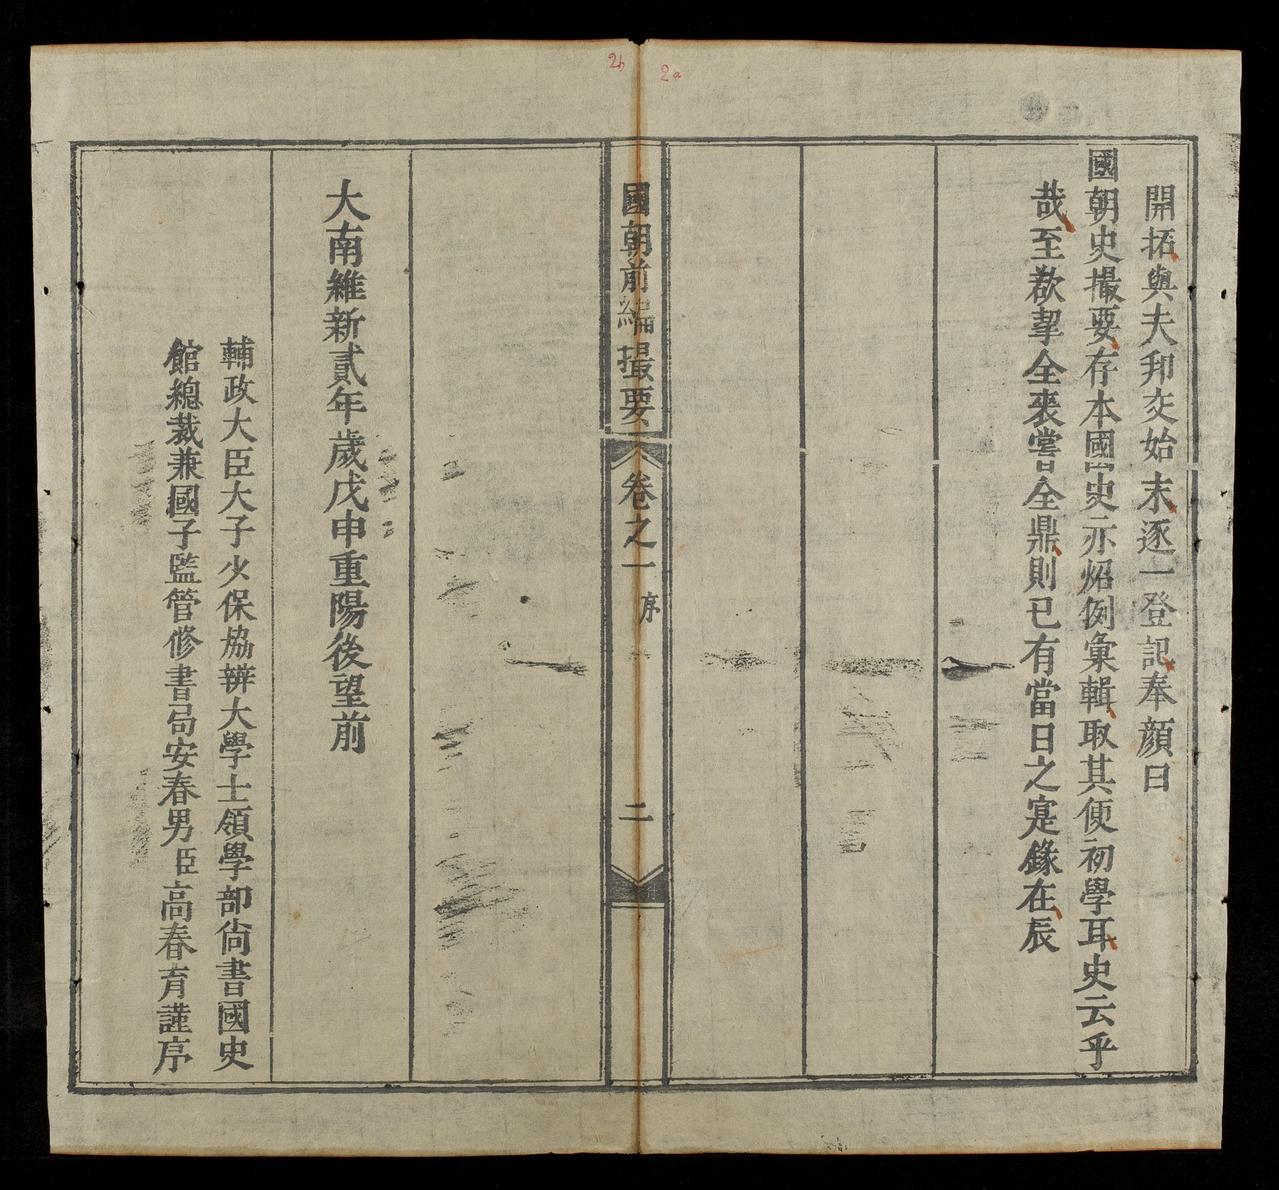 開拓與夫邦交始末逐一登記奉顔曰
國朝史撮要存本國國史亦炤例彙輯取其便初學耳史云乎
哉至歃挈全裘嘗全鼎則已有當日之寔錄在辰
2a
2b
國朝前編撮要
卷之一
序
二
大南維新貳年歲戊申重陽後望前
輔政大臣太子少保協辦大學士領學部尙書國史
館總裁兼國子監管修書局安春男臣高春育謹序